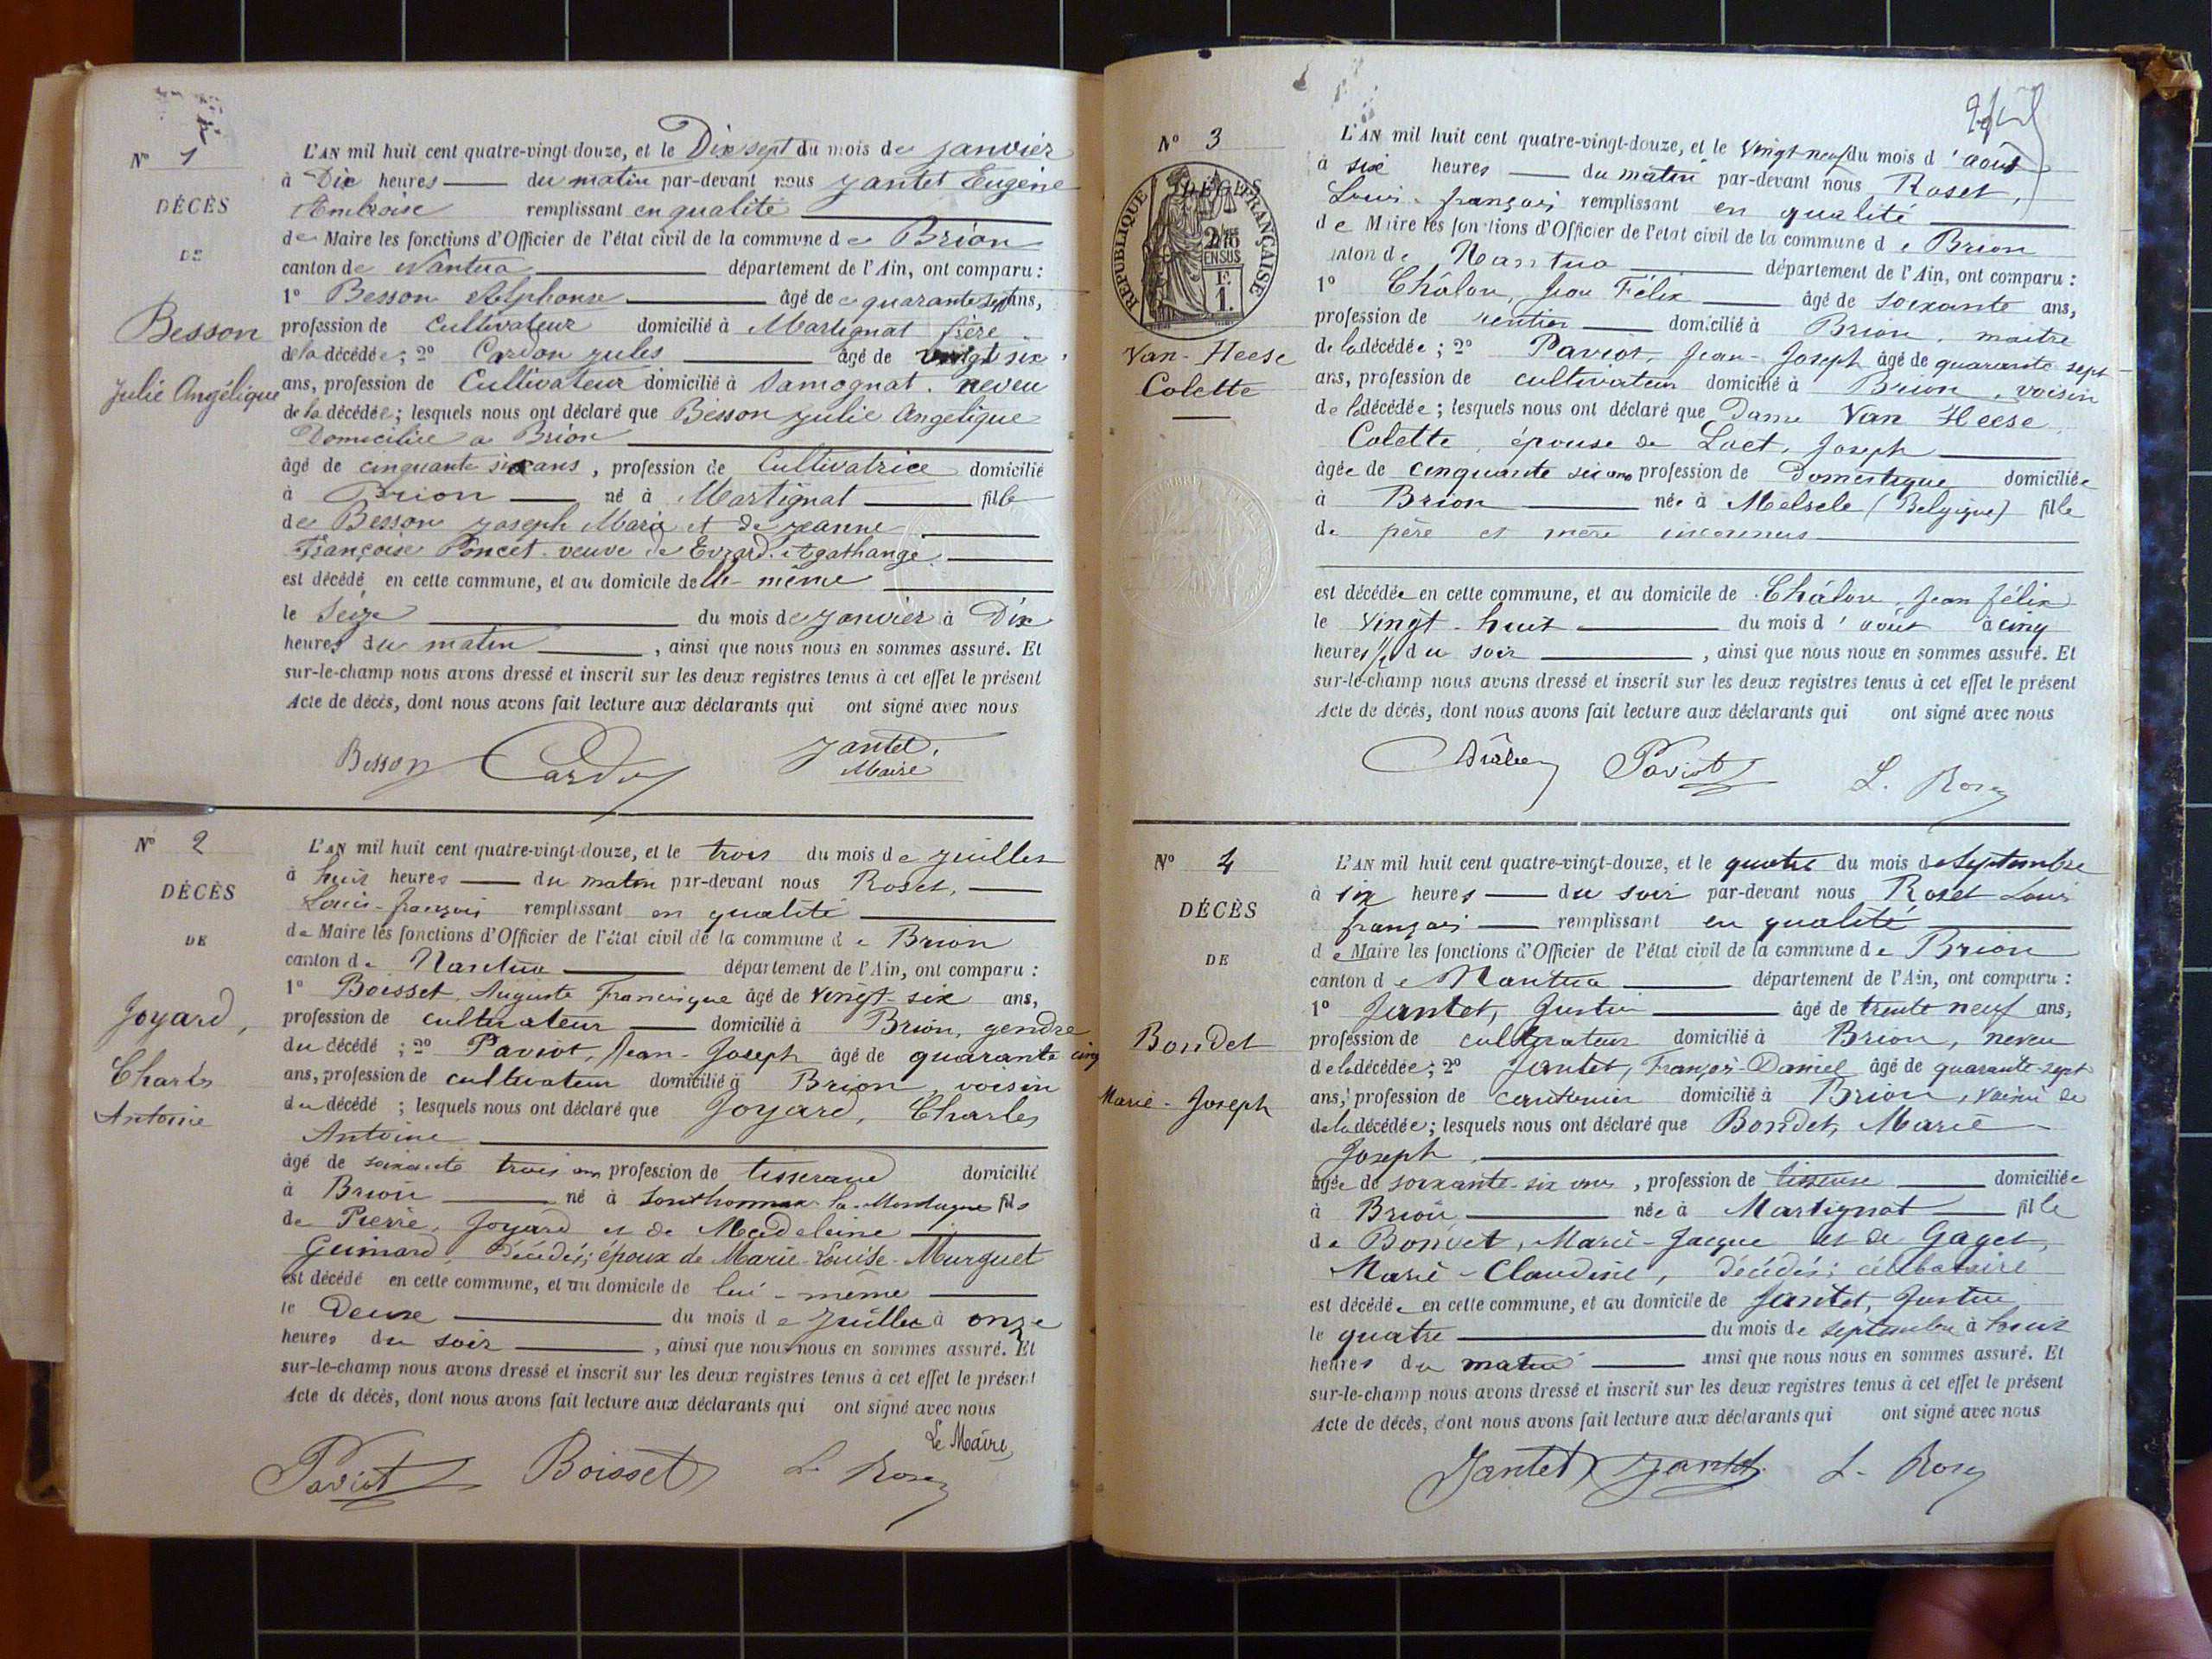 N° 1
DÉCÈS
DE
Besson
Julie Angélique
L'AN mil huit cent quatre-vingt-douze, et le Dix sept du mois de janvier
à Dix heures du matin par-devant nous Jantet Eugène
Ambroise remplissant en qualité
de Maire les fonctions d'Officier de l'état civil de la commune de Brion
canton de Nantua département de l'Ain, ont comparu :
1° Besson Alphonse âgé de quarante sept ans,
profession de Cultivateur domicilié à Martignat frère
de la décédée ; 2° Cardon Jules âgé de vingt six
ans, profession de Cultivateur domicilié à Samognat . neveu
de la décédée ; lesquels nous ont déclaré que Besson Julie Angélique
Domiciliée a Brion
âgé de cinquante six ans , profession de Cultivatrice domicilié
à Brion né à Martignat fille
de Besson Joseph Marie et de Jeanne
Françoise Poncet veuve de Evrard Agathange
est décédé en cette commune, et au domicile d'elle-même
le Seize du mois de Janvier à Dix
heures du matin , ainsi que nous nous en sommes assuré. Et
sur-le-champ nous avons dressé et inscrit sur les deux registres tenus à cet effet le présent
Acte de décès, dont nous avons fait lecture aux déclarants qui ont signé avec nous
Besson Cardon Jantet,
Maire
N° 2
DÉCÈS
DE
Joyard,
Charles
Antoine
L'AN mil huit cent quatre-vingt-douze, et le trois du mois de Juillet
à huit heures du matin par-devant nous Roset,
Louis-françois remplissant en qualité
de Maire les fonctions d'Officier de l'état civil de la commune de Brion
canton de Nantua département de l'Ain, ont comparu :
1° Boisset, Auguste Francisque âgé de vingt-six ans,
profession de cultivateur domicilié à Brion, gendre
du décédé ; 2° Paviot, Jean-Joseph âgé de quarante cinq
ans, profession de cultivateur domicilié à Brion, voisin
du décédé ; lesquels nous ont déclaré que Joyard, Charles
Antoine
âgé de soixante trois ans profession de tisserand domicilié
à Brion né à Sonthonnax-la-Montagne fils
de Pierre, Joyard et de Madeleine
Guinard, décédés; époux de Marie-Louise-Murguet
est décédé en cette commune, et au domicile de lui-même
le Deux du mois de Juillet à onze
heures du soir , ainsi que nous nous en sommes assuré. Et
sur-le-champ nous avons dressé et inscrit sur les deux registres tenus à cet effet le présent
Acte de décès, dont nous avons fait lecture aux déclarants qui ont signé avec nous
Le Maire,
Paviot Boisset L. Roset
N° 3
DÉCÈS
RÉPUBLIQUE FRANÇAISE
Van-Heese
Colette
L'AN mil huit cent quatre-vingt-douze, et le vingt-neuf du mois d'août
à six heures du matin par-devant nous Roset,
Louis-françois remplissant en qualité
de Maire les fonctions d'Officier de l'état civil de la commune de Brion
canton de Nantua département de l'Ain, ont comparu :
1° Châlon, Jean Félix âgé de soixante ans,
profession de rentier domicilié à Brion, maître
de la décédée ; 2° Paviot, Jean-Joseph âgé de quarante sept
ans, profession de cultivateur domicilié à Brion, voisin
de la décédée ; lesquels nous ont déclaré que Dame Van Heese
Colette, épouse de Laet, Joseph
âgée de cinquante six ans profession de Domestique domiciliée
à Brion née à Melsele (Belgique) fille
de père et mère inconnus
est décédée en cette commune, et au domicile de Châlon, Jean félix
le vingt-huit du mois d'août à cinq
heures 1/2 du soir , ainsi que nous nous en sommes assuré. Et
sur-le-champ nous avons dressé et inscrit sur les deux registres tenus à cet effet le présent
Acte de décès, dont nous avons fait lecture aux déclarants qui ont signé avec nous
Châlon Paviot L. Roset
N° 4
DÉCÈS
DE
Bondet
Marie-Joseph
L'AN mil huit cent quatre-vingt-douze, et le quatre du mois de Septembre
à six heures du soir par-devant nous Roset Louis
françois remplissant en qualité
de Maire les fonctions d'Officier de l'état civil de la commune de Brion
canton de Nantua département de l'Ain, ont comparu :
1° Jantet, Justin âgé de trente neuf ans,
profession de cultivateur domicilié à Brion, neveu
de la décédée ; 2° Jantet, François-Daniel âgé de quarante-sept
ans, profession de cantonnier domicilié à Brion, voisin de
de la décédée ; lesquels nous ont déclaré que Bondet, Marie
Joseph
âgée de soixante-six ans , profession de tisseuse domiciliée
à Brion née à Martignat fille
de Bondet, Marie-Jacque et de Gaget,
Marie-Claudine, décédés; célibataire
est décédée en cette commune, et au domicile de Jantet, Justin
le quatre du mois de septembre à huit
heures du matin ainsi que nous nous en sommes assuré. Et
sur-le-champ nous avons dressé et inscrit sur les deux registres tenus à cet effet le présent
Acte de décès, dont nous avons fait lecture aux déclarants qui ont signé avec nous
Jantet Jantet L. Roset